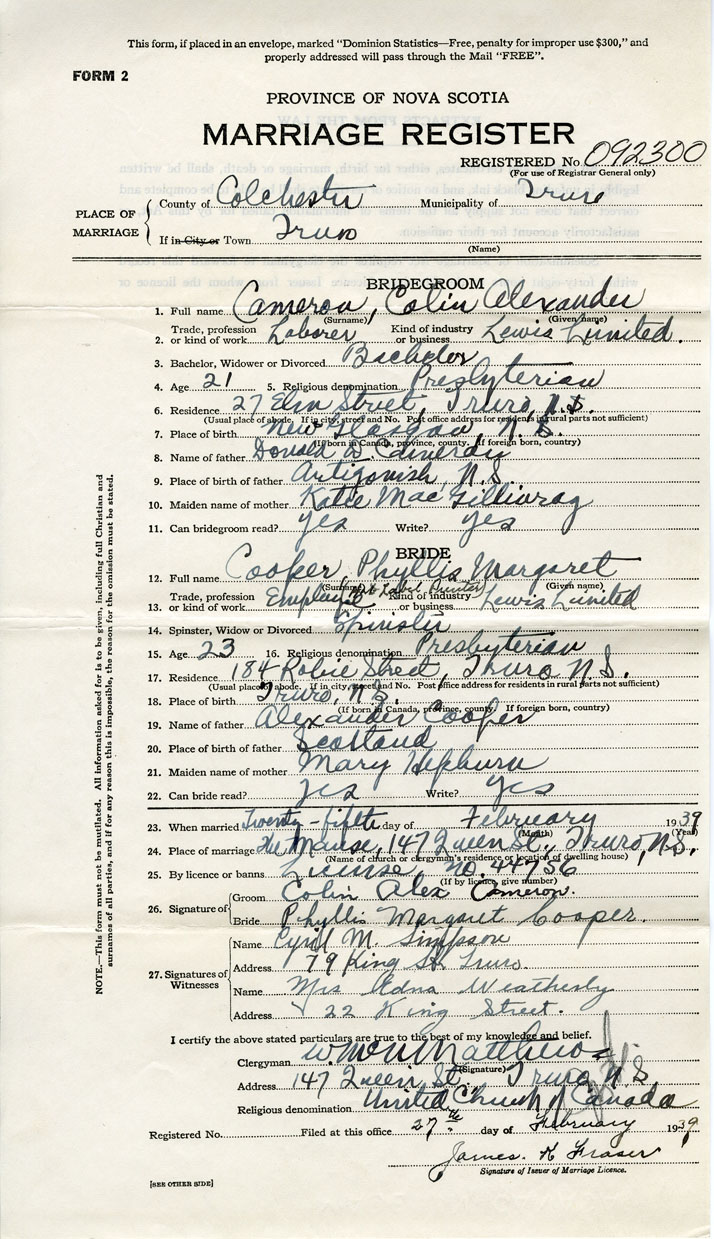 This form, if placed in an envelope, marked "Dominion Statistics—Free, penalty for improper use $300," and
properly addressed will pass through the Mail "FREE".
FORM 2
PROVINCE OF NOVA SCOTIA
MARRIAGE REGISTER
REGISTERED No. 092300
(For use of Registrar General only)
PLACE OF MARRIAGE
County of Colchester Municipality of Truro
If in City or Town Truro
(Name)
BRIDEGROOM
1. Full name Cameron, Colin Alexander
(Surname) (Given name)
2. Trade, profession or kind of work Laborer Kind of industry or business Lewis Limited.
3. Bachelor, Widower or Divorced Bachelor
4. Age 21 5. Religious denomination Presbyterian
6. Residence 27 Elm Street, Truro, N.S.
(Usual place of abode. If in city, street and No. Post office address for residents in rural parts not sufficient)
7. Place of birth New Glasgow, N.S.
(If born in Canada, province, county. If foreign born, country)
8. Name of father Donald D. Cameron
9. Place of birth of father Antigonish, N.S
10. Maiden name of mother Katie MacGillivray
11. Can bridegroom read? yes Write? yes
BRIDE
12. Full name Cooper, Phyllis Margaret
(Surname) (Given name)
13. Trade, profession or kind of work Employee Box Label Printer Kind of industry or business Lewis Limited
14. Spinster, Widow or Divorced Spinster
15. Age 23 16. Religious denomination Presbyterian
17. Residence 184 Robie Street, Truro N.S.
(Usual place of abode. If in city, street and No. Post office address for residents in rural parts not sufficient)
18. Place of birth Truro, N.S.
(If born in Canada, province, county. If foreign born, country)
19. Name of father Alexander Cooper
20. Place of birth of father Scotland
21. Maiden name of mother Mary Hepburn
22. Can bride read? yes Write? yes
23. When married Twenty-fifth day of February 1939
(Month) (Year)
24. Place of marriage The Manse, 147 Queen St., Truro, N.S.
(Name of church or clergyman's residence or location of dwelling house)
25. By licence or banns License, No. 44756
(If by licence, give number)
26. Signature of
Groom Colin Alex Cameron.
Bride Phyllis Margaret Cooper.
27. Signatures of Witnesses
Name Cyril M. Simpson
Address 79 King St. Truro.
Name Mrs Edna Weatherby
Address 22 King Street.
I certify the above stated particulars are true to the best of my knowledge and belief.
Clergyman Matthews
(Signature)
Address 147 Queen St. Truro N S
Religious denomination United Church of Canada
Registered No. Filed at this office 27th day of February 1939
James. K Fraser
Signature of Issuer of Marriage Licence.
[SEE OTHER SIDE]
NOTE.—This form must not be mutilated. All information asked for is to be given, including full Christian and
surnames of all parties, and if for any reason this is impossible, the reason for the omission must be stated.